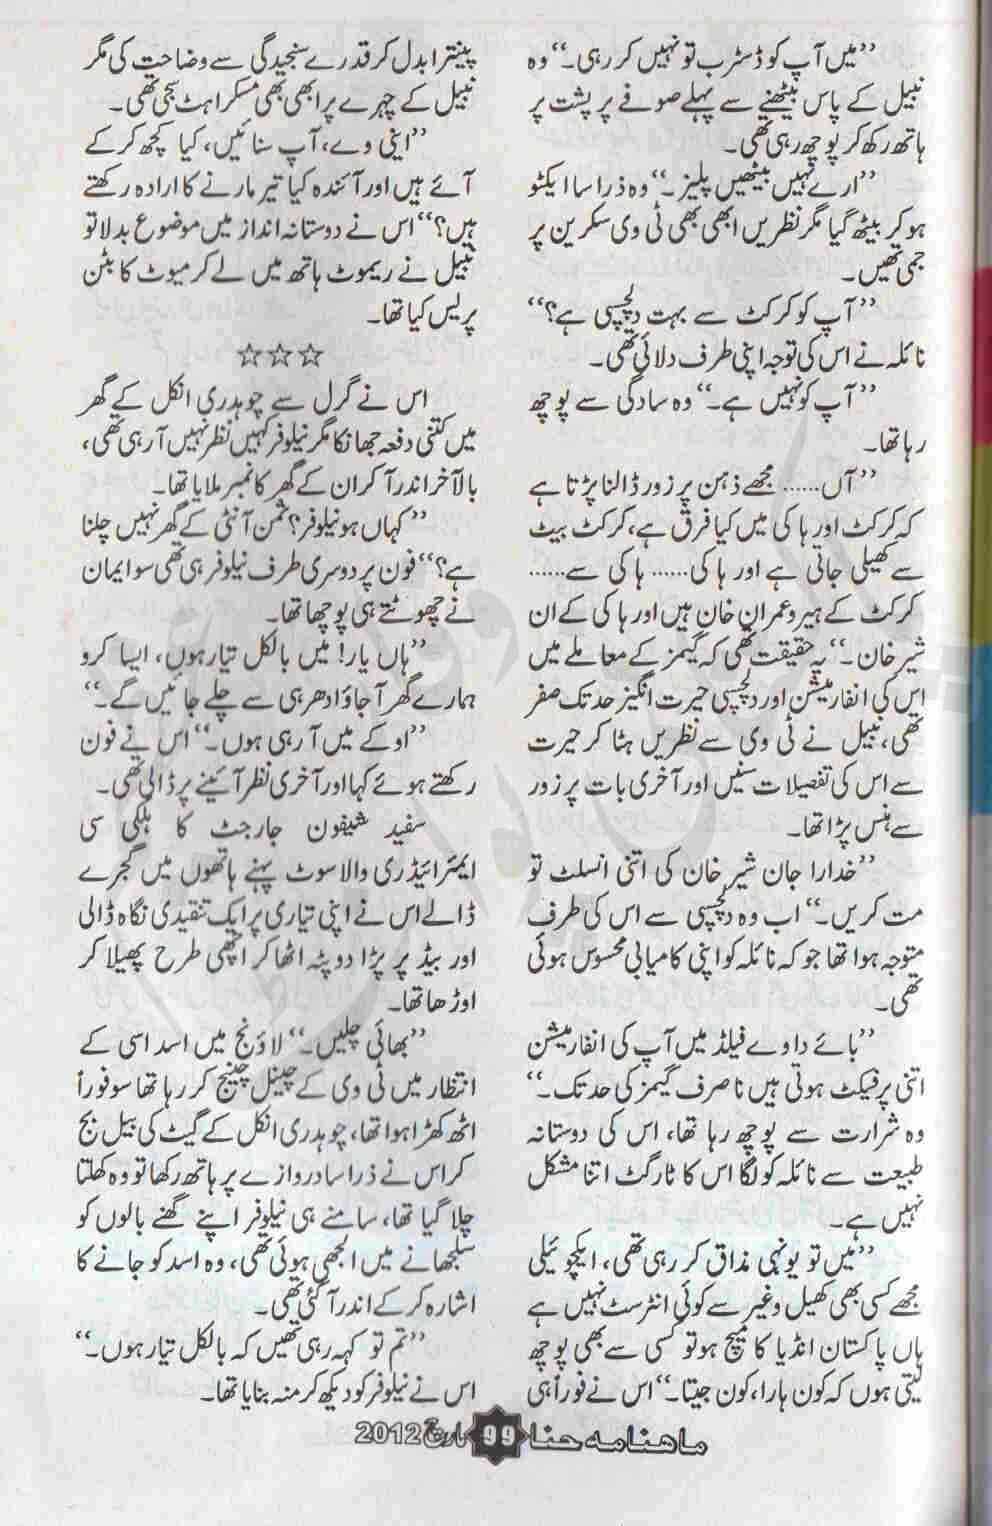 ”میں آپ کو ڈسٹرب تو نہیں کر رہی۔“ وہ
نبیل کے پاس بیٹھنے سے پہلے صوفے پر پشت پر
ہاتھ رکھ کر پوچھ رہی تھی۔
”ارے نہیں بیٹھیں پلیز۔“ وہ ذرا سا ایکٹو
ہو کر بیٹھ گیا مگر نظریں ابھی بھی ٹی وی سکرین پر
جمی تھیں۔
”آپ کو کرکٹ سے بہت دلچسپی ہے؟“
نائلہ نے اس کی توجہ اپنی طرف دلائی تھی۔
”آپ کو نہیں ہے۔“ وہ سادگی سے پوچھ
رہا تھا۔
”آں...... مجھے ذہن پر زور ڈالنا پڑتا ہے
کہ کرکٹ اور ہاکی میں کیا فرق ہے، کرکٹ بیٹ
سے کھیلی جاتی ہے اور ہاکی...... ہاکی سے......
کرکٹ کے ہیرو عمران خان ہیں اور ہاکی کے ان
شیر خان۔“ یہ حقیقت تھی کہ گیمز کے معاملے میں
اس کی انفارمیشن اور دلچسپی حیرت انگیز حد تک صفر
تھی، نبیل نے ٹی وی سے نظریں ہٹا کر حیرت
سے اس کی تفصیلات سنیں اور آخری بات پر زور
سے ہنس پڑا تھا۔
”خدارا جان شیر خان کی اتنی انسلٹ تو
مت کریں۔“ اب وہ دلچسپی سے اس کی طرف
متوجہ ہوا تھا جو کہ نائلہ کو اپنی کامیابی محسوس ہوئی
تھی۔
”بائے داوے فیلڈ میں آپ کی انفارمیشن
اتنی پرفیکٹ ہوتی ہیں نا صرف گیمز کی حد تک۔“
وہ شرارت سے پوچھ رہا تھا، اس کی دوستانہ
طبیعت سے نائلہ کو لگا اس کا ٹارگٹ اتنا مشکل
نہیں ہے۔
”میں تو یونہی مذاق کر رہی تھی، ایکچوئیلی
مجھے کسی بھی کھیل وغیر سے کوئی انٹرسٹ نہیں ہے
ہاں پاکستان انڈیا کا میچ ہو تو کسی سے بھی پوچھ
لیتی ہوں کہ کون ہارا، کون جیتا۔“ اس نے فوراً ہی
پینترا بدل کر قدرے سنجیدگی سے وضاحت کی مگر
نبیل کے چہرے پر ابھی بھی مسکراہٹ سجی تھی۔
”اینی وے، آپ سنائیں، کیا کچھ کر کے
آئے ہیں اور آئندہ کیا تیر مارنے کا ارادہ رکھتے
ہیں؟“ اس نے دوستانہ انداز میں موضوع بدلا تو
نبیل نے ریموٹ ہاتھ میں لے کر میوٹ کا بٹن
پریس کیا تھا۔
☆☆☆
اس نے گرل سے چوہدری انکل کے گھر
میں کتنی دفعہ جھانکا مگر نیلوفر کہیں نظر نہیں آ رہی تھی،
بالآخر اندر آ کر ان کے گھر کا نمبر ملایا تھا۔
”کہاں ہو نیلوفر؟ ثمن آنٹی کے گھر نہیں چلنا
ہے؟“ فون پر دوسری طرف نیلوفر ہی تھی سو ایمان
نے چھوٹتے ہی پوچھا تھا۔
”ہاں یار! میں بالکل تیار ہوں، ایسا کرو
ہمارے گھر آ جاؤ ادھر ہی سے چلے جائیں گے۔“
”اوکے میں آ رہی ہوں۔“ اس نے فون
رکھتے ہوئے کہا اور آخری نظر آئینے پر ڈالی تھی۔
سفید شیفون جارجٹ کا ہلکی سی
ایمبرائیڈری والا سوٹ پہنے ہاتھوں میں گجرے
ڈالے اس نے اپنی تیاری پر ایک تنقیدی نگاہ ڈالی
اور بیڈ پر پڑا دوپٹہ اٹھا کر اچھی طرح پھیلا کر
اوڑھا تھا۔
”بھائی چلیں۔“ لاؤنج میں اسد اسی کے
انتظار میں ٹی وی کے چینل چینج کر رہا تھا سو فوراً
اٹھ کھڑا ہوا تھا، چوہدری انکل کے گیٹ کی بیل بج
کر اس نے ذرا سا دروازے پر ہاتھ رکھا تو وہ کھلتا
چلا گیا تھا، سامنے ہی نیلوفر اپنے گھنے بالوں کو
سلجھانے میں الجھی ہوئی تھی، وہ اسد کو جانے کا
اشارہ کر کے اندر آ گئی تھی۔
”تم تو کہہ رہی تھیں کہ بالکل تیار ہوں۔“
اس نے نیلوفر کو دیکھ کر منہ بنایا تھا۔
ماهنامه حنا 99 مارچ 2012